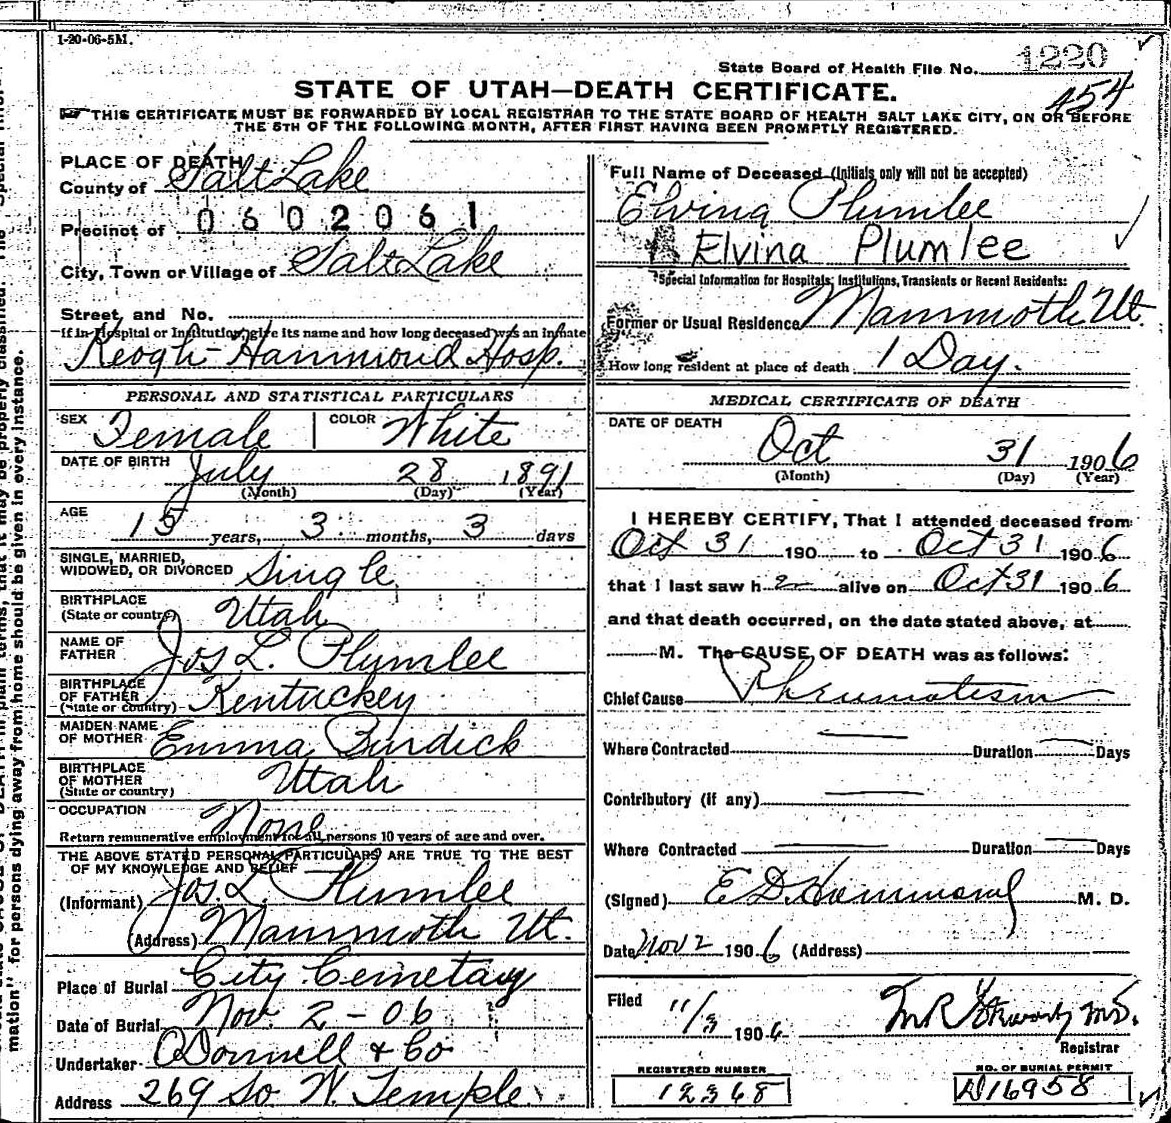 1-20-06-5M.
State Board of Health File No. 1220
454
STATE OF UTAH—DEATH CERTIFICATE.
THIS CERTIFICATE MUST BE FORWARDED BY LOCAL REGISTRAR TO THE STATE BOARD OF HEALTH SALT LAKE CITY, ON OR BEFORE
THE 5TH OF THE FOLLOWING MONTH, AFTER FIRST HAVING BEEN PROMPTLY REGISTERED.
PLACE OF DEATH
County of Salt Lake
Precinct of 0602061
City, Town or Village of Salt Lake
Street, and No.
If in Hospital or Institution, give its name and how long deceased was an inmate
Keogh-Hammond Hosp.
Full Name of Deceased (Initials only will not be accepted)
Elvina Plumlee
Elvina Plumlee
Special Information for Hospitals, Institutions, Transients or Recent Residents:
Former or Usual Residence Mammoth Ut.
How long resident at place of death 1 Day.
PERSONAL AND STATISTICAL PARTICULARS
SEX Female COLOR White
DATE OF BIRTH July 28 1891
(Month) (Day) (Year)
AGE 15 years, 3 months, 3 days
SINGLE, MARRIED,
WIDOWED, OR DIVORCED Single
BIRTHPLACE
(State or country) Utah
NAME OF
FATHER Jos L. Plumlee
BIRTHPLACE
OF FATHER
(State or country) Kentuckey
MAIDEN NAME
OF MOTHER Emma Burdick
BIRTHPLACE
OF MOTHER
(State or country) Utah
OCCUPATION None
Return remunerative employment for all persons 10 years of age and over.
THE ABOVE STATED PERSONAL PARTICULARS ARE TRUE TO THE BEST
OF MY KNOWLEDGE AND BELIEF
(Informant) Jos. L. Plumlee
(Address) Mammoth Ut.
Place of Burial City Cemetary
Date of Burial Nov. 2 - 06
Undertaker O'Donnell & Co
Address 269 So. W. Temple.
MEDICAL CERTIFICATE OF DEATH
DATE OF DEATH
Oct 31 1906
(Month) (Day) (Year)
I HEREBY CERTIFY, That I attended deceased from
Oct 31 190 to Oct 31 1906
that I last saw h alive on Oct 31 1906
and that death occurred, on the date stated above, at
M. The CAUSE OF DEATH was as follows:
Chief Cause Rheumatism
Where Contracted — Duration — Days
Contributory (if any) —
Where Contracted — Duration — Days
(Signed) E D. Hammond M. D.
Date Nov 2 1906 (Address)
Filed 11/3 1906
Registrar
REGISTERED NUMBER
12368
NO. OF BURIAL PERMIT
D16958
mation" for persons dying away from home should be given in every instance.